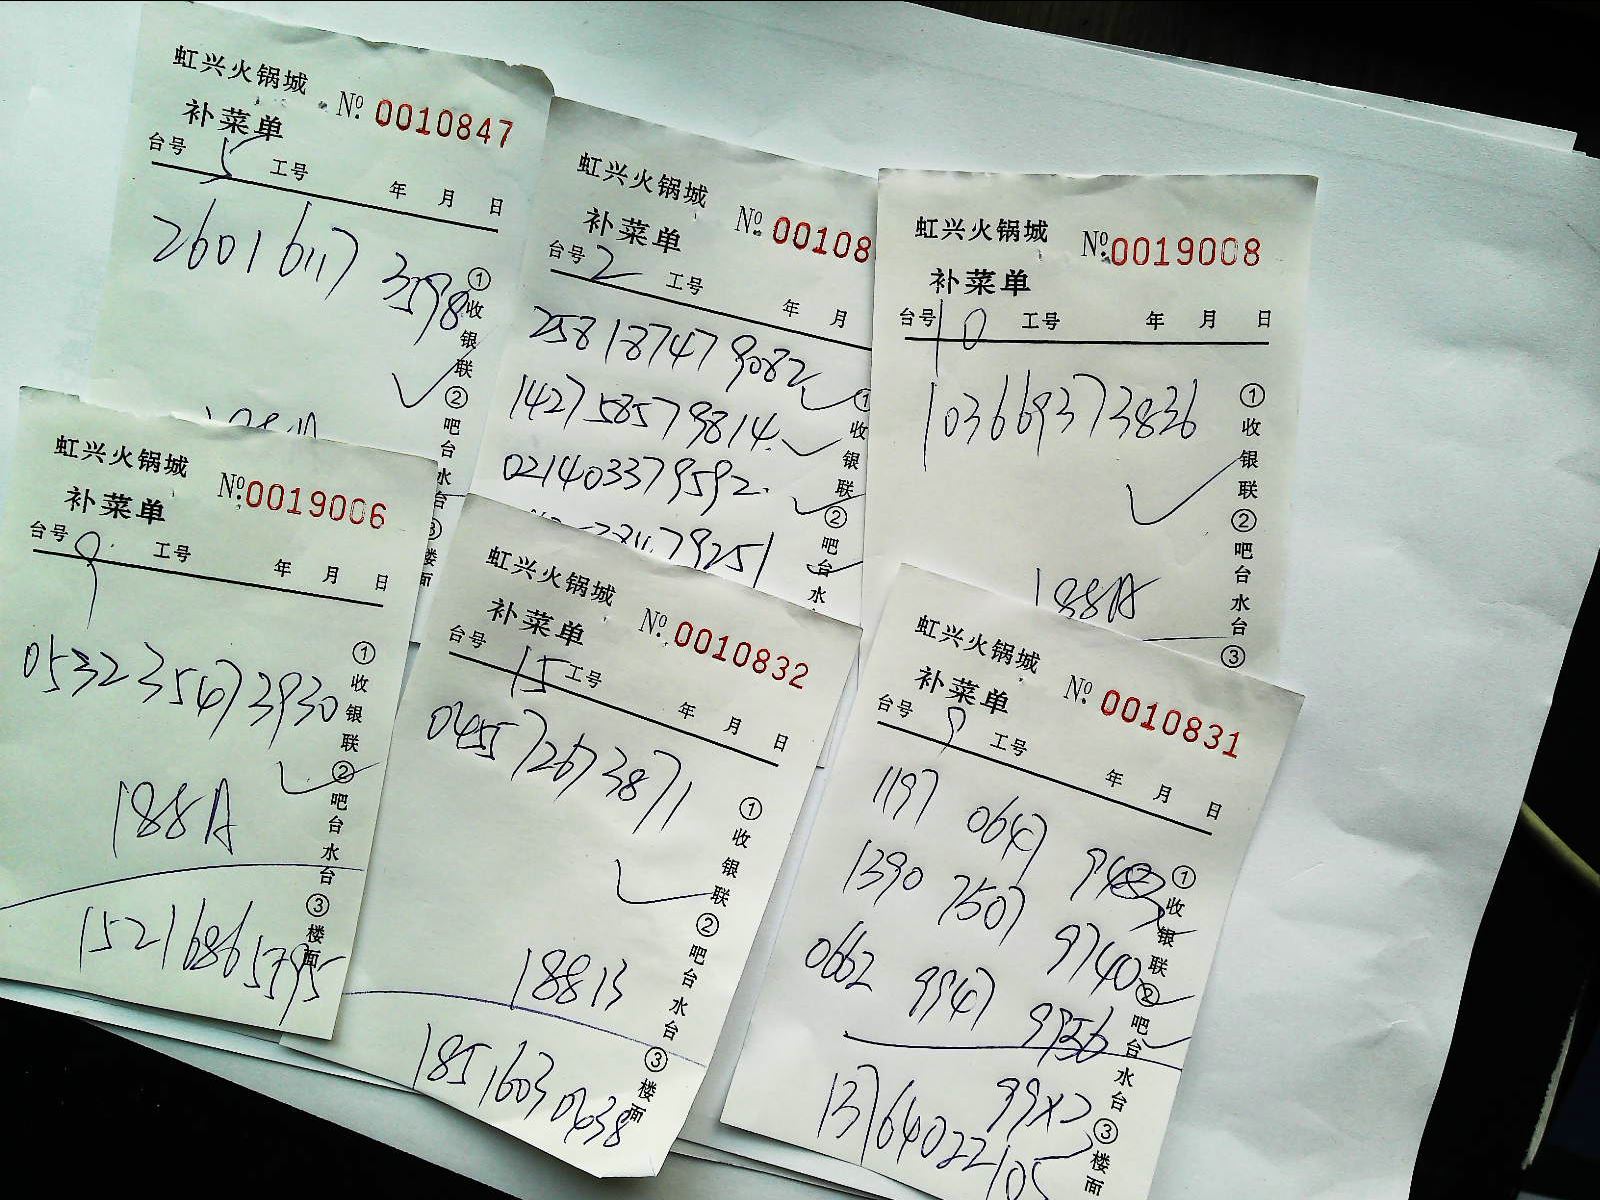 虹兴火锅城
补菜单 № 0010847
台号 5 工号 年 月 日
2601 6117 3598
①收银联②吧台水台③楼面
虹兴火锅城
补菜单 № 00108
台号 2 工号 年 月
258187479082
142758579814
021403379592
79251
①收银联②吧台水
虹兴火锅城
补菜单 №0019008
台号 10 工号 年 月 日
103669373836
188A
①收银联②吧台水台③
虹兴火锅城
补菜单 №0019006
台号 9 工号 年 月 日
053235473930
188A
15216865795
①收银联②吧台水台③楼面
虹兴火锅城
补菜单 № 0010832
台号 15 工号 年 月 日
045572673871
188B
18516030438
①收银联②吧台水台③楼面
虹兴火锅城
补菜单 № 0010831
台号 9 工号 年 月 日
1197 0647
1390 7507 9740
0662 9947 9956
99x2
13764022105
①收银联②吧台水台③楼面